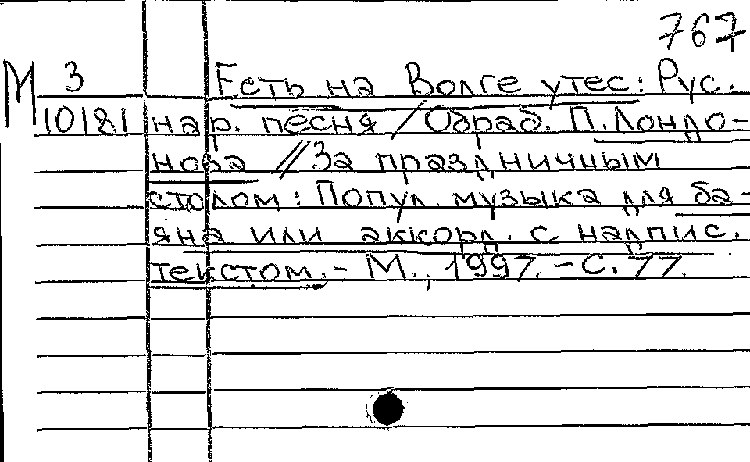 767
М 3 Есть на Волге утес: Рус.
10181 нар. песня / Обраб. П. Лондо-
нова // За праздничным
столом: Попул. музыка для ба-
яна или аккорд. с надпис.
текстом. - М., 1997. - С. 77.